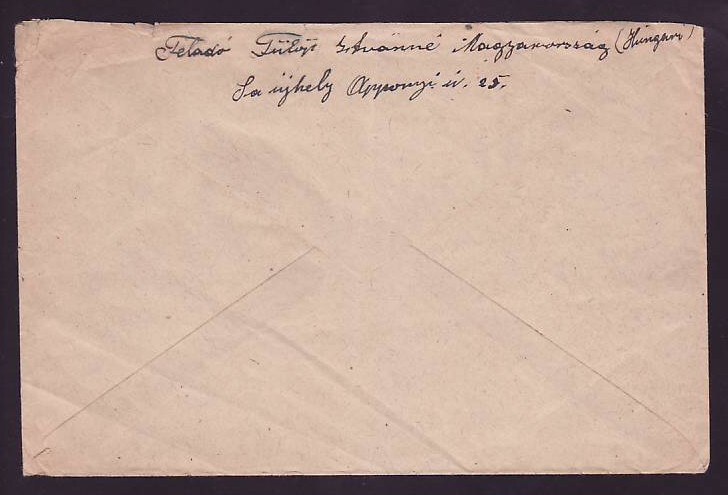 Feladó Fülöp Istvánné Magyarország (Hungary)
Sa újhely Apponyi ú. 25.